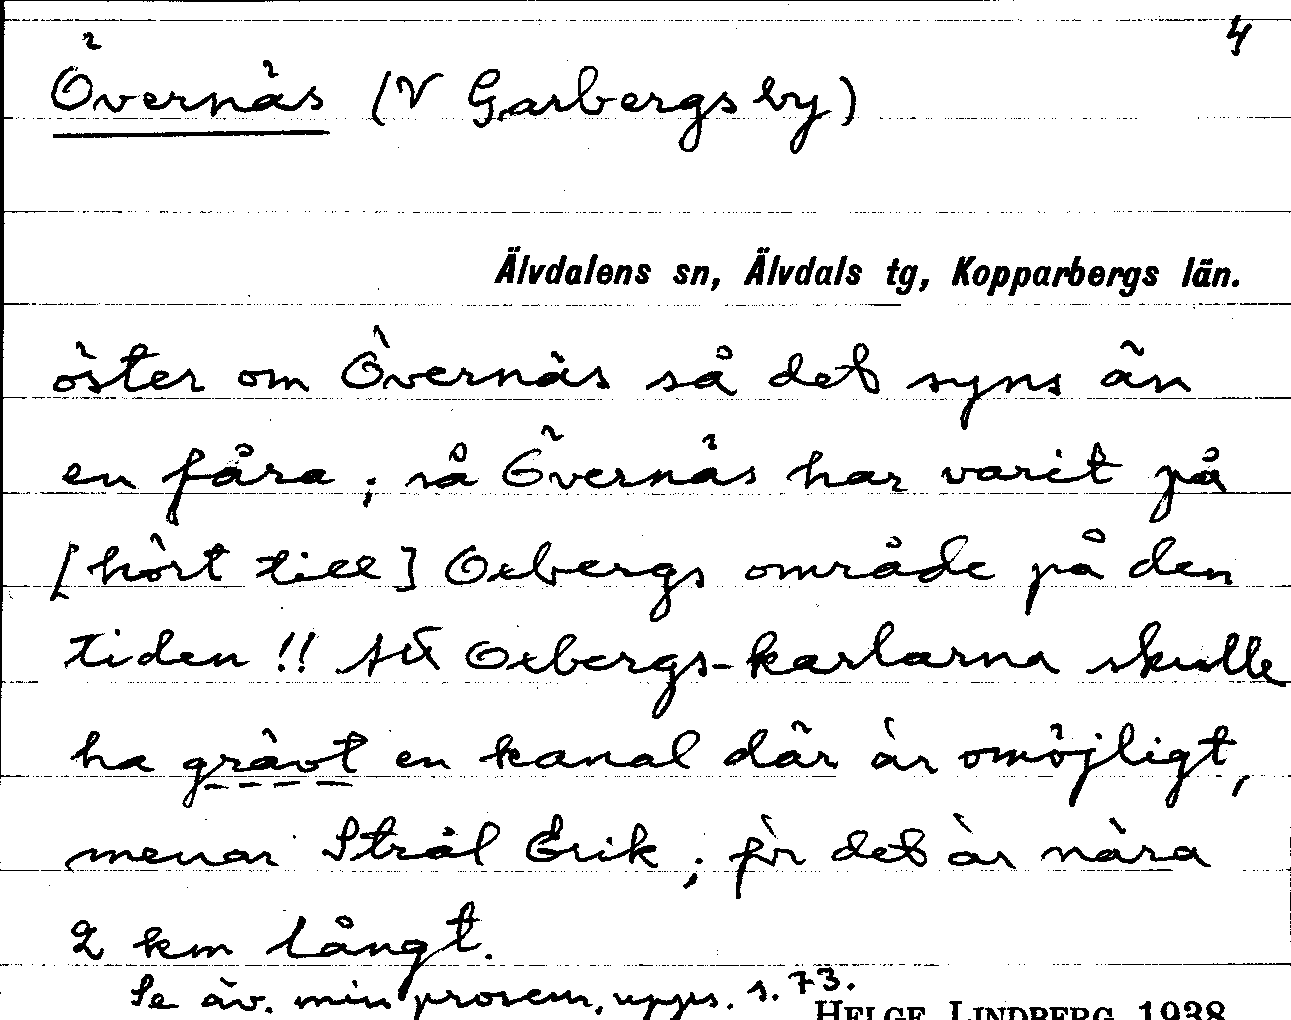 4
Övernäs (V Garbergs by)
Älvdalens sn, Älvdals tg, Kopparbergs län.
öster om Övernäs så det syns än
en fåra; så Övernäs har varit på
[hört till] Oxbergs område på den
tiden!! Att Oxbergs-karlarna skulle
ha grävt en kanal där är omöjligt,
menar Strål Erik; för det är nära
2 km långt.
Se äv. min prosem. upps. s. 73.
HELGE LINDBERG 1938